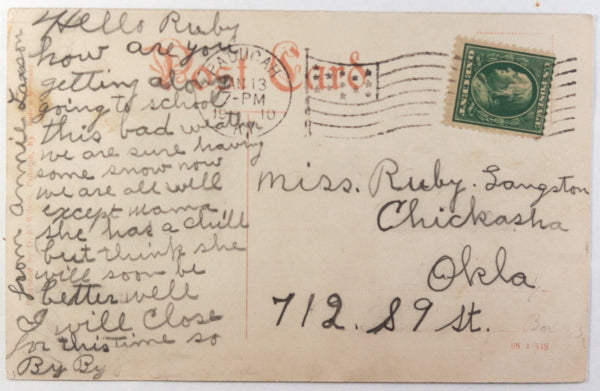 Hello Ruby
how are you
getting along
going to school
this bad weather
we are sure having
some snow now
we are all well
except mama
she has a chill
but think she
will soon be
better well
I will close
for this time so
By By
from Annie Lawson
Post Card
PADUCAH
JAN 13
7-PM
1910
KY.
U.S. POSTAGE
ONE CENT
Miss. Ruby. Langston
Chickasha
Okla
712. S 9 St.